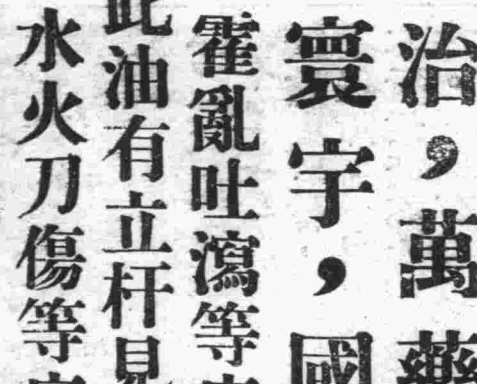 治，萬藥
寰宇，國
霍亂吐瀉等
此油有立杆見
水火刀傷等